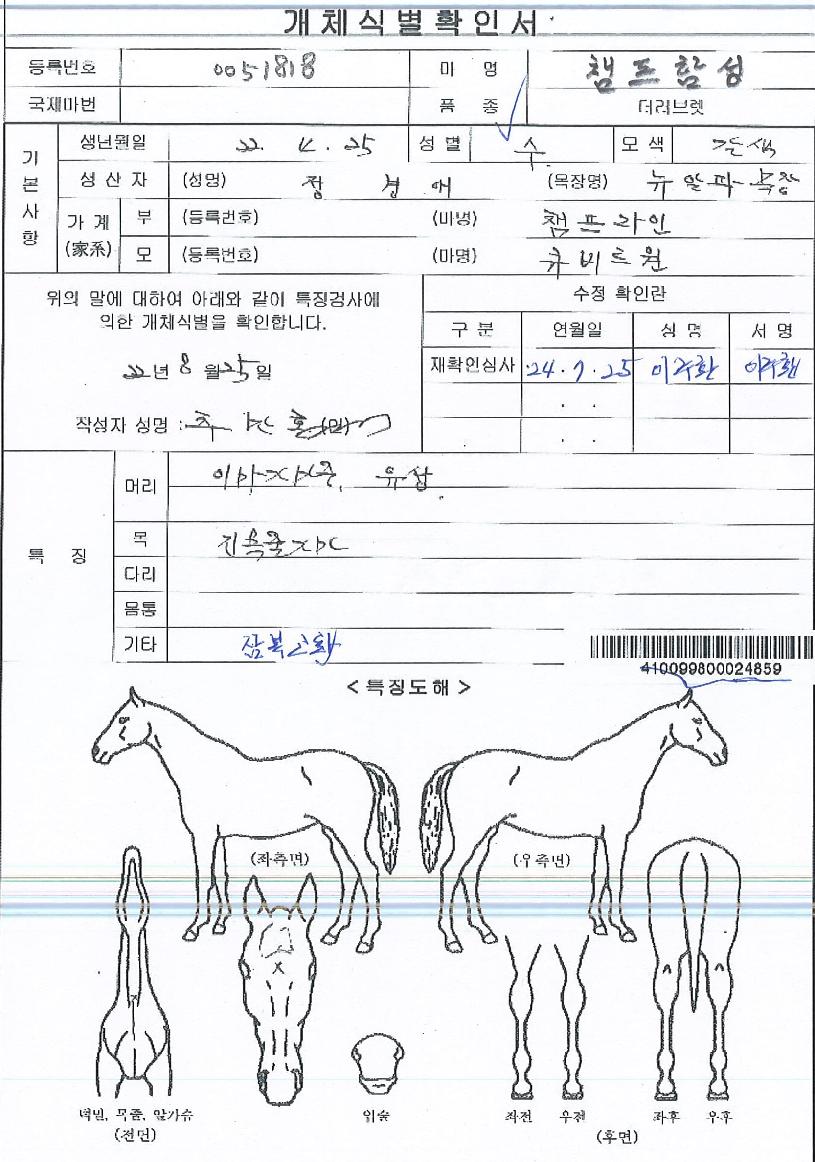 개체식별확인서
등록번호 0051818 마 명 챔프함성
국제마번 품 종 더러브렛
기본사항
생년월일 22. 4. 25 성별 수 모색 갈색
생산자 (성명) 정 경 애 (목장명) 뉴알파목장
가계 (家系) 부 (등록번호) (마명) 챔프라인
모 (등록번호) (마명) 큐비트원
위의 말에 대하여 아래와 같이 특징검사에
의한 개체식별을 확인합니다.
22년 8월 25일
작성자 성명 :
수정 확인란
구 분 연월일 성 명 서 명
재확인심사 24.7.25
. .
. .
특 징
머리 유상
목
다리
몸통
기타
410099800024859
< 특징도해 >
(좌측면) (우측면)
턱밑, 목줄, 앞가슴
(전면)
입술
좌전 우전 좌후 우후
(후면)